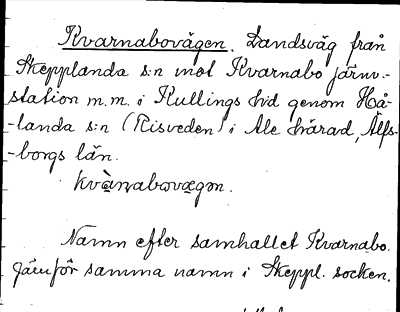 Kvarnabovägen. Landsväg från
Skepplanda s:n mot Kvarnabo järnv.-
-station m.m. i Kullings hd genom Hå-
-landa s:n (Risveden) i Ale härad, Älfs-
-borgs län.
kvànabovægən.
Namn efter samhället Kvarnabo.
Jämför samma namn i Skeppl. socken.